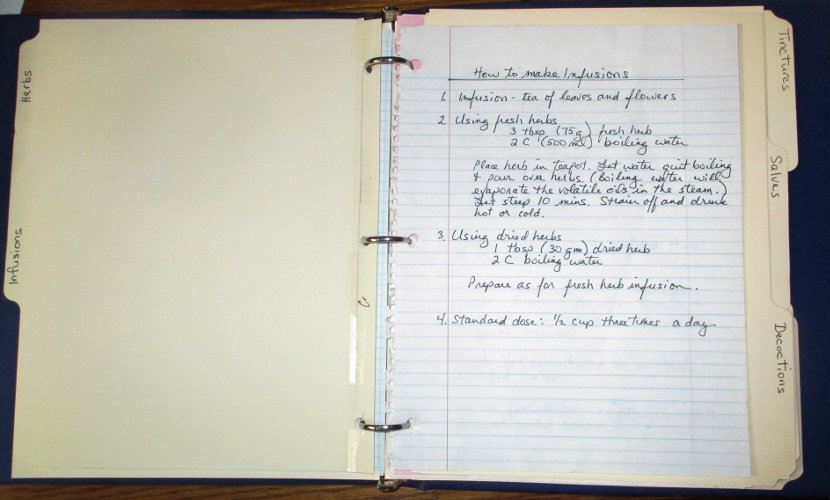 Herbs
Infusions
How to make Infusions
1. Infusion - tea of leaves and flowers
2. Using fresh herbs
3 tbsp (75g) fresh herb
2 C (500 ml) boiling water
Place herb in teapot. Let water quit boiling
& pour over herbs. (Boiling water will
evaporate the volatile oils in the steam.)
Let steep 10 mins. Strain off and drink
hot or cold.
3. Using dried herbs
1 tbsp (30 gm) dried herb
2 C boiling water
Prepare as for fresh herb infusion.
4. Standard dose: 1/2 cup three times a day
Tinctures
Salves
Decoctions